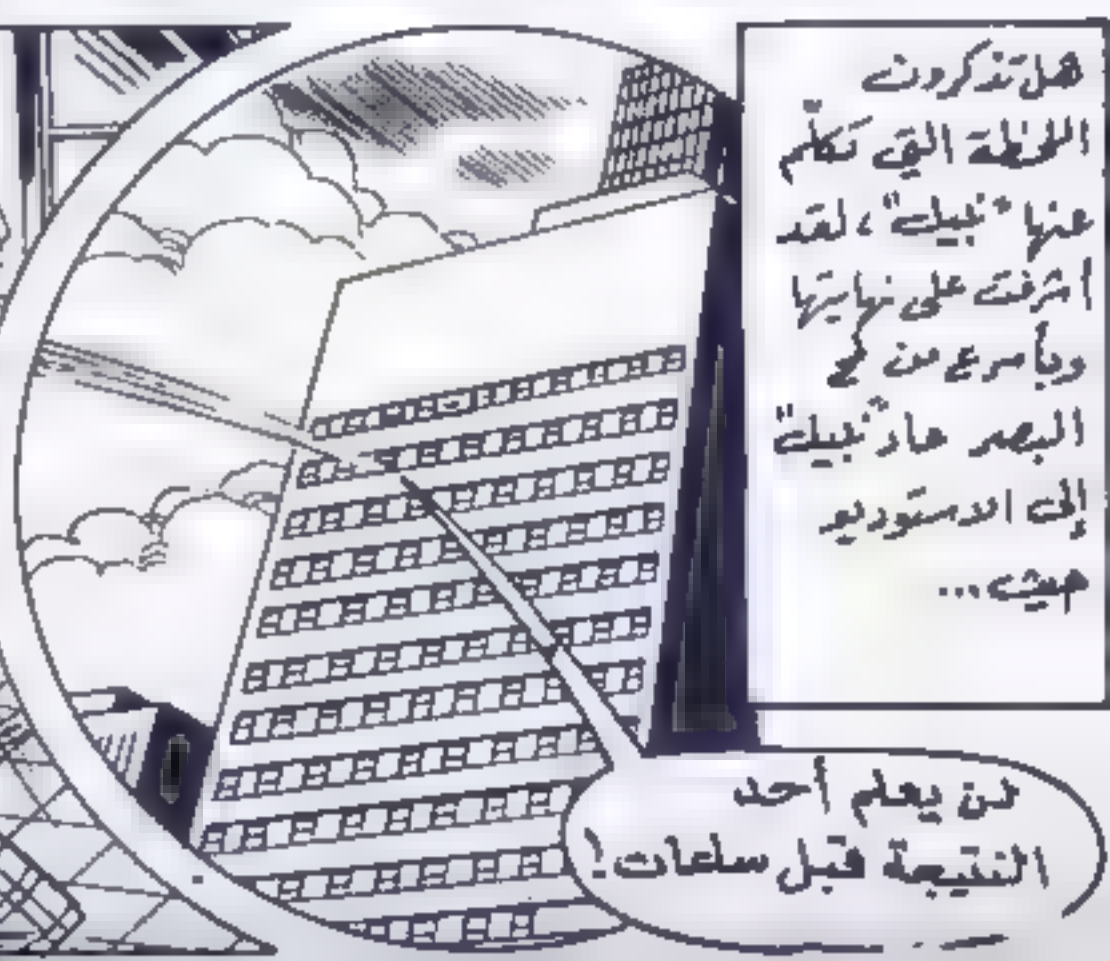 هل تذكرون
اللحظة التي تكلّم
عنها "نبيل"، لقد
أشرفت على نهايتها
وبأسرع من لمح
البصر عاد "نبيل"
إلى الاستوديو
حيث...
لن يعلم أحد
النتيجة قبل ساعات!